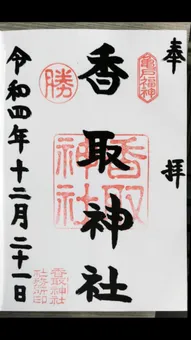 奉拝
亀戸福神
香取神社
香取神社
勝
令和四年十二月二十一日
香取神社
社務所印